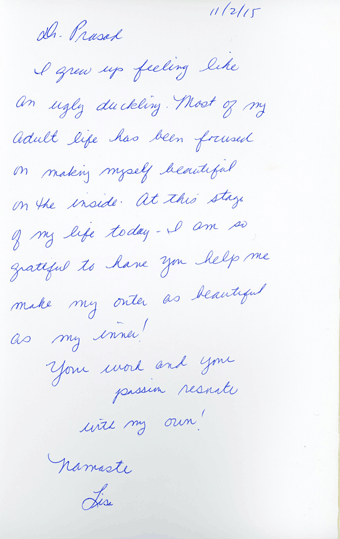 11/2/15
Dr. Prasad
I grew up feeling like
an ugly duckling. Most of my
adult life has been focused
on making myself beautiful
on the inside. At this stage
of my life today - I am so
grateful to have you help me
make my outer as beautiful
as my inner!
Your work and your
passion resonate
with my own!
Namaste
Lisa